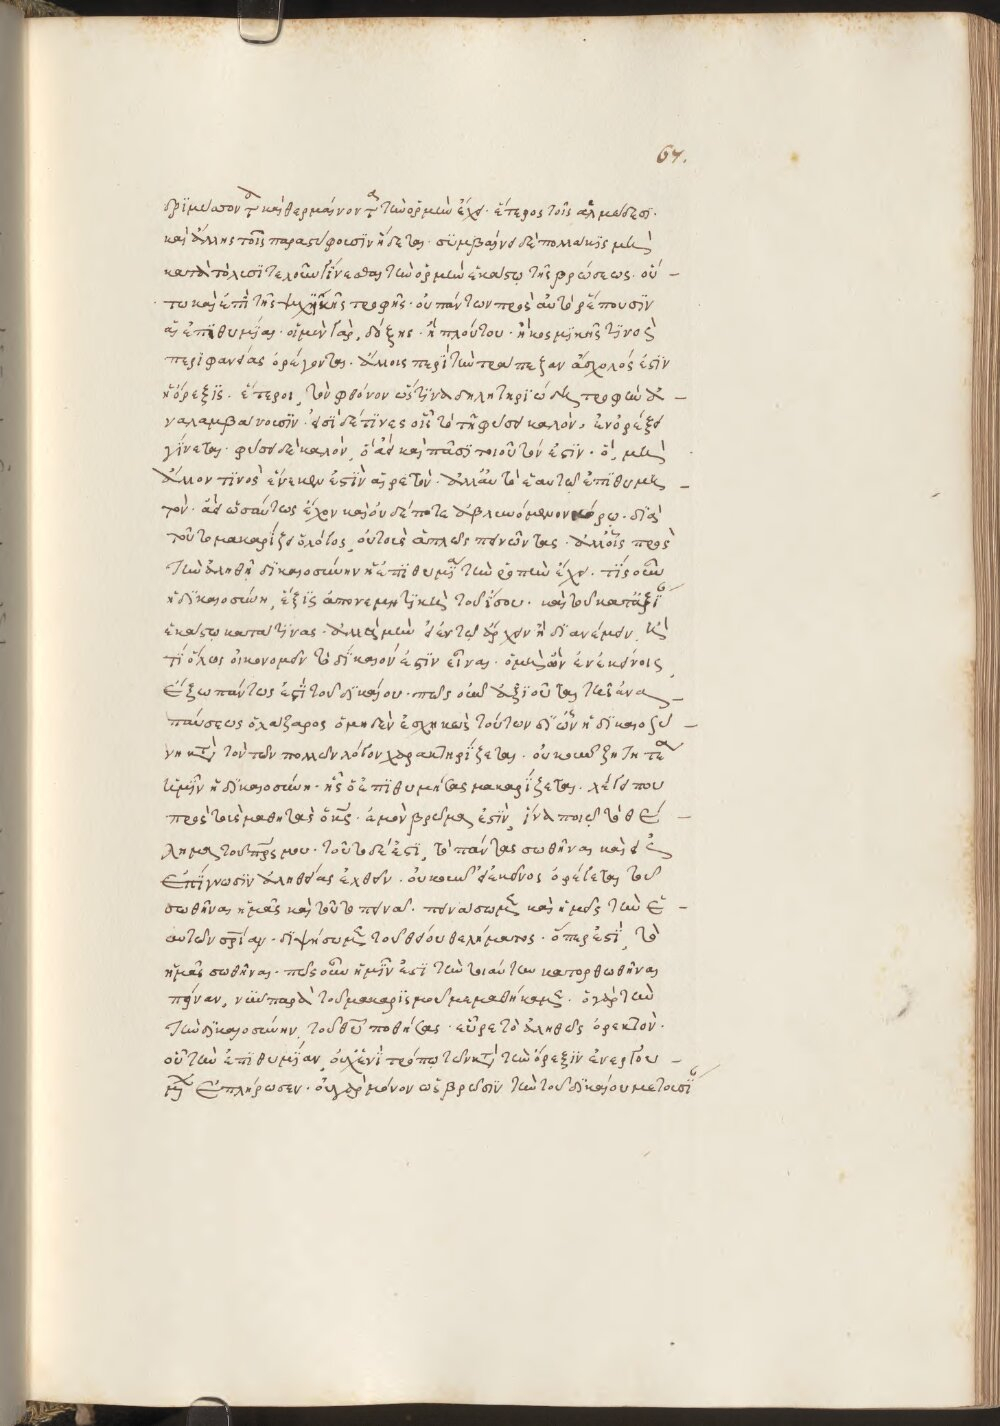 67.
δριμύσσον τ καὶ θερμαῖνον τ τὴν ὁρμὴν ἔχει· ἕτερος τοῖς ἁλμώδεσι·
καὶ ἄλλης τοῖς παραστύφουσιν ἥδεται· συμβαίνει δὲ πολλάκις μὴ
κατὰ τὸ λυσιτελοῦν γίνεσθαι τὴν ὁρμὴν ἑκάστῳ τῆς βρώσεως· οὕ –
τω καὶ ἐπὶ τῆς ψυχικῆς τροφῆς· οὐ πάντων πρὸς αὐτὸ ῥέπουσιν
αἱ ἐπιθυμίαι· οἱ μὲν γὰρ, δόξης· ἢ πλούτου· ἢ κοσμικῆς τινος
περιφανείας ὀρέγονται· ἄλλοις περὶ τὴν τράπεζαν ἄσχολός ἐστιν
ἡ ὄρεξις· ἕτεροι, τὸν φθόνον ὥς τινα δηλητηριώδη τροφὴν ἀ –
ναλαμβάνουσιν· εἰσὶ δέ τινες οἷς τὸ τῇ φύσει καλὸν, ἐν ὀρέξει
γίνεται· φύσει δὲ καλὸν, ὃ ἀεὶ καὶ πᾶσι τοιοῦτόν ἐστιν· ὃ, μὴ
ἄλλου τινὸς ἕνεκεν ἐστὶν αἱρετὸν· ἀλλ᾽ αὐτὸ ἑαυτῷ ἐπιθυμη –
τὸν· ἀεὶ ὡσαύτως ἔχον καὶ οὐδέποτε ἀμβλυνόμενον κόρῳ· διὰ
τοῦτο μακαρίζει ὁ λόγος, οὐ τοὺς ἁπλῶς πεινῶντας· ἀλλ᾽ οἷς πρὸς
τὴν ἀληθῆ δικαιοσύνην ἡ ἐπιθυμία τὴν ῥοπὴν ἔχει· τίς οὖν
ἡ δικαιοσύνη, ἕξις ἀπονεμητικὴ τοῦ ἴσου· καὶ τοῦ κατ᾽ ἀξίαν
ἑκάστῳ κατά τινας· ἀλλὰ μὴν εἰ ἐν τῷ ἄρχειν ἢ διανέμειν, ἢ
τι ὅλως οἰκονομεῖν τὸ δίκαιόν ἐστιν εἶναι· ὁ μὴ ὢν ἐν ἐκείνοις,
ἔξω πάντως ἐστὶ τοῦ δικαίου· πῶς οὖν ἀξιοῦται τῆς ἀνα –
παύσεως ὁ λάζαρος ὁ μηδὲν ἐσχηκὼς τούτων δι᾽ ὧν ἡ δικαιοσύ –
νη κατὰ τὸν τῶν πολλῶν λόγον χαρακτηρίζεται· οὐκοῦν ζητητέα
ἡμῖν ἡ δικαιοσύνη· ἧς ὁ ἐπιθυμήσας μακαρίζεται· λέγει που
πρὸς τοὺς μαθητὰς ὁ κς· ἐμὸν βρῶμα ἐστὶν, ἵνα ποιῶ τὸ θέ –
λημα τοῦ πρς μου· τοῦτο δέ ἐστι, τὸ πάντας σωθῆναι καὶ εἰς
ἐπίγνωσιν ἀληθείας ἐλθεῖν· οὐκοῦν εἰ ἐκεῖνος ὀρέγεται τοῦ
σωθῆναι ἡμᾶς καὶ τοῦτο πεινᾶ· πεινάσωμεν καὶ ἡμεῖς τὴν ἑ –
αυτῶν σρίαν· διψήσωμεν τοῦ θείου θελήματος· ὅπερ ἐστὶ, τὸ
ἡμᾶς σωθῆναι· πῶς οὖν ἡμῖν ἐστὶ τὴν τοιαύτην κατορθωθῆναι
πεῖναν, νῦν παρὰ τοῦ μακαρισμοῦ μεμαθήκαμεν· ὁ γὰρ τὴν
τὴν δικαιοσύνην, τοῦ θυ ποθήσας· εὗρε τὸ ἀληθῶς ὀρεκτὸν·
οὗ τὴν ἐπιθυμίαν, οὐχ ἑνὶ τρόπῳ τῶν κατὰ τὴν ὄρεξιν ἐνεργου –
μένων ἐπλήρωσεν· οὐ γὰρ μόνον ὡς βρῶσιν τὴν τοῦ δικαίου μετουσίαν